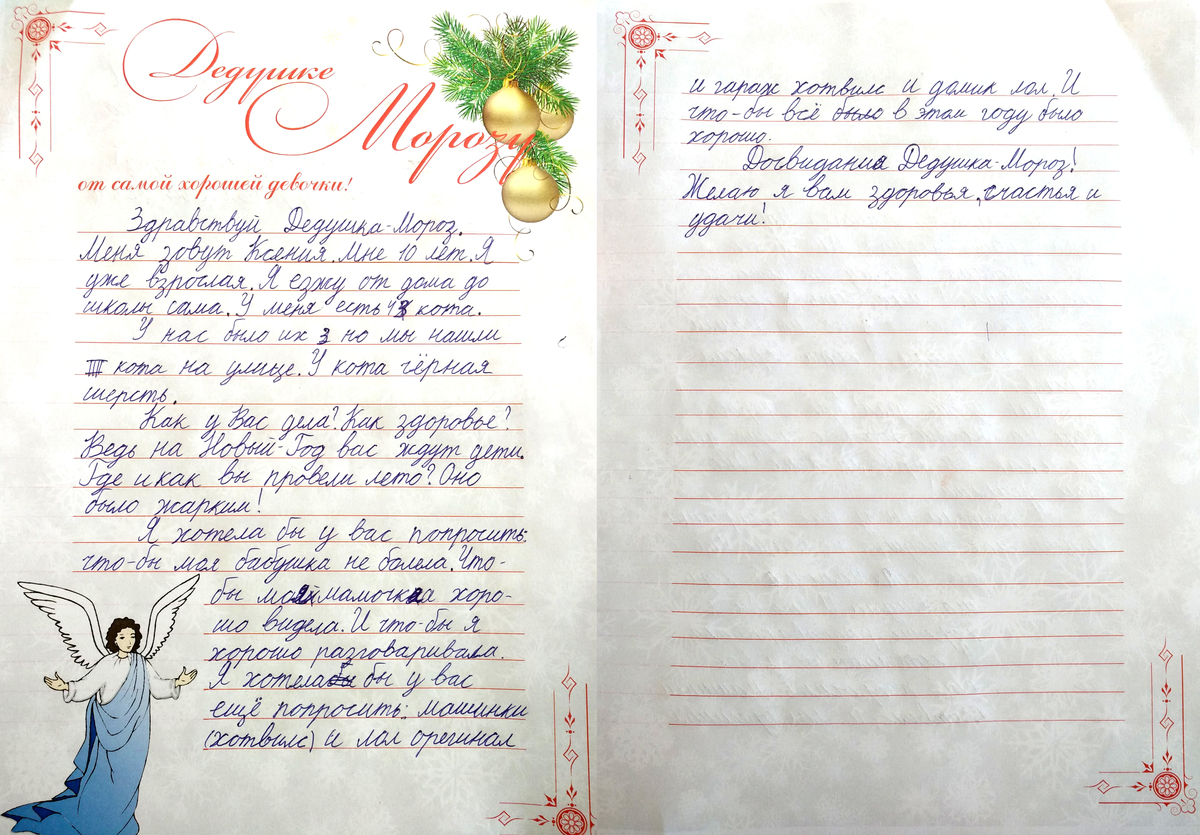 Дедушке
Морозу
от самой хорошей девочки!
Здравствуй Дедушка-Мороз.
Меня зовут Ксения. Мне 10 лет. Я
уже взрослая. Я езжу от дома до
школы сама. У меня есть 4 кота.
У нас было их 3 но мы нашли
III кота на улице. У кота чёрная
шерсть.
Как у Вас дела? Как здоровье?
Ведь на Новый-Год вас ждут дети.
Где и как вы провели лето? Оно
было жарким!
Я хотела бы у вас попросить:
что-бы моя бабушка не болела. Что-
бы моя мамочка хоро-
шо видела. И что-бы я
хорошо разговаривала.
Я хотела бы у вас
ещё попросить: машинки
(хотвилс) и лол орегинал
и гараж хотвилс и домик лол. И
что-бы всё было в этом году было
хорошо.
Досвидания Дедушка-Мороз!
Желаю я вам здоровья, счастья и
удачи!